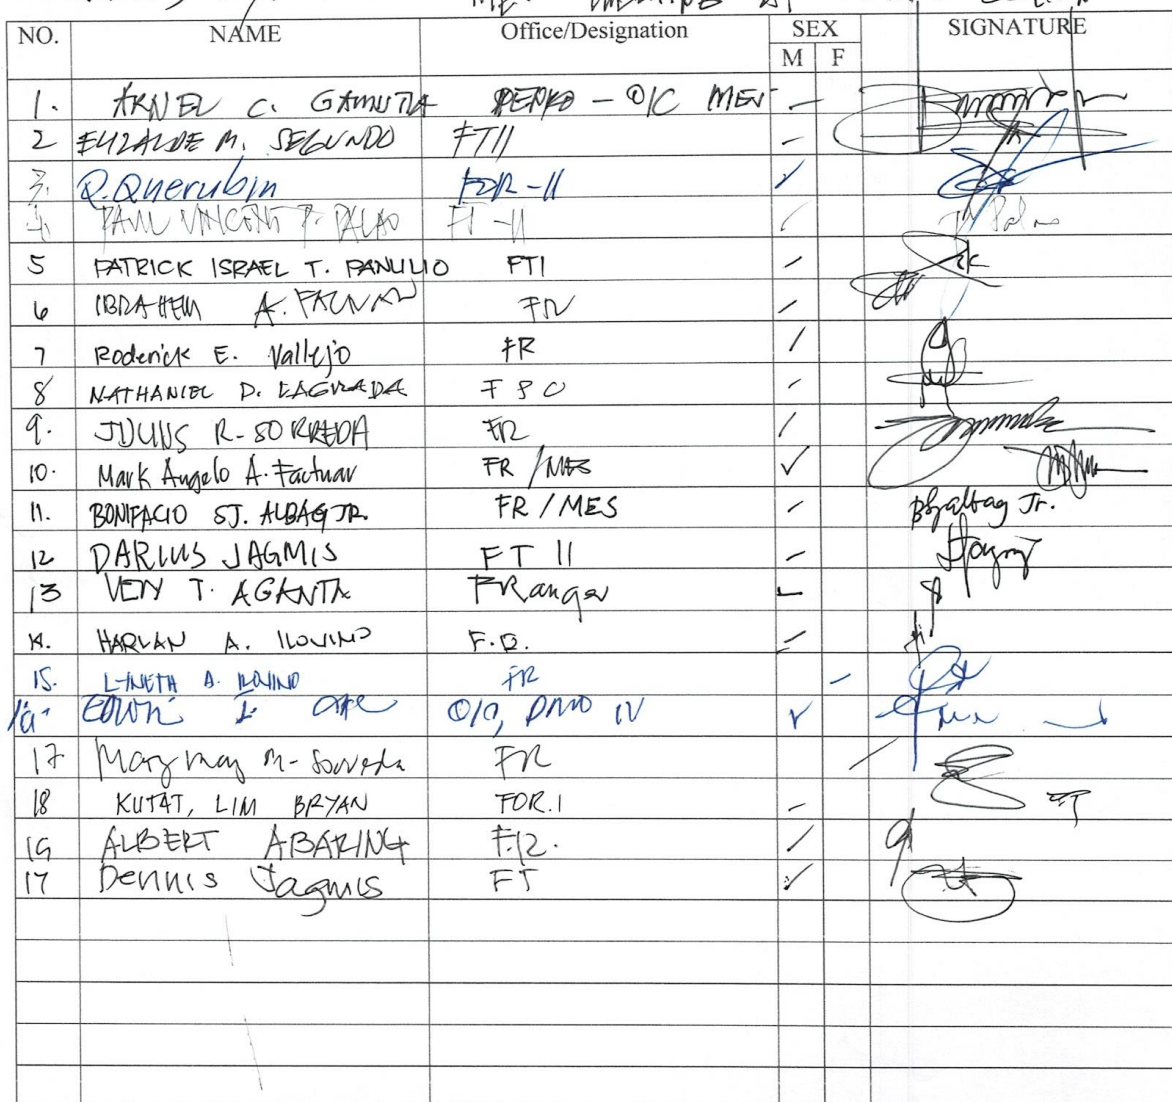 NO. NAME Office/Designation SEX SIGNATURE
M F
1. ARNEL C. GAMUTIA - O/C MES
2 ELIZALDE M. SEGUNDO FTII
3. Q. Querubin FOR-II
4. PAUL VINCENT P. PALAO FT-II
5 PATRICK ISRAEL T. PANULIO FTI
6 IBRAHEM A. FR
7 Roderick E. Vallejo FR
8 NATHANIEL D. LAGRADA
9. JULIUS R. SORREDA FR
10. Mark Angelo A. Factuar FR / MES
11. BONIFACIO SJ. ALBAG JR. FR / MES
12 DARIUS JAGMIS FT II
13 T. AGANTA FRanger
14. HARLAN A. ILOVINO F.R.
15. LINETH A. ILOVINO FR
EDWIN OIC, DMO IV
17 Marymay M. Sorreda FR
18 KUTAT, LIM BRYAN FOR.1
19 ALBERT ABARING F.R.
17 Dennis Jagmis FT